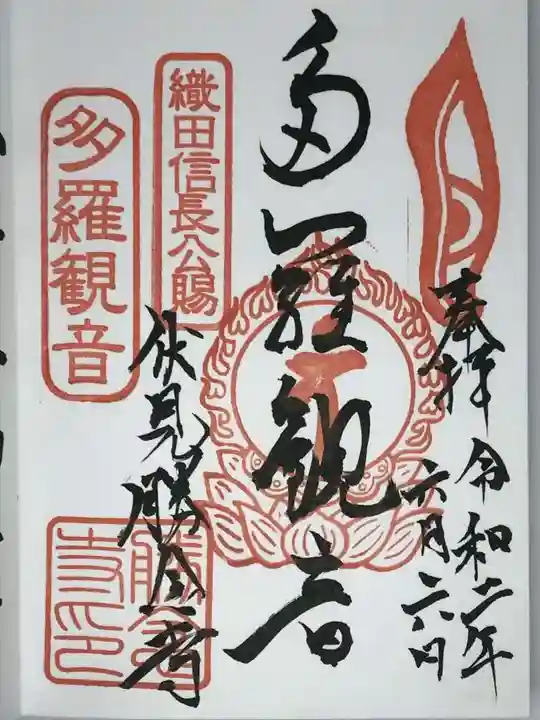 奉拝
令和二年
六月六日
多羅観音
織田信長公賜
多羅観音
伏見勝念寺
勝念
寺印